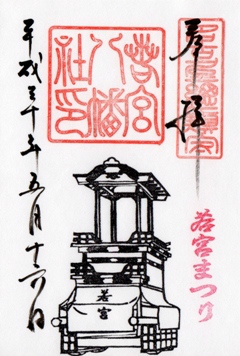 奉拝
若宮八幡社印
平成三十年五月十六日
若宮まつり
若宮